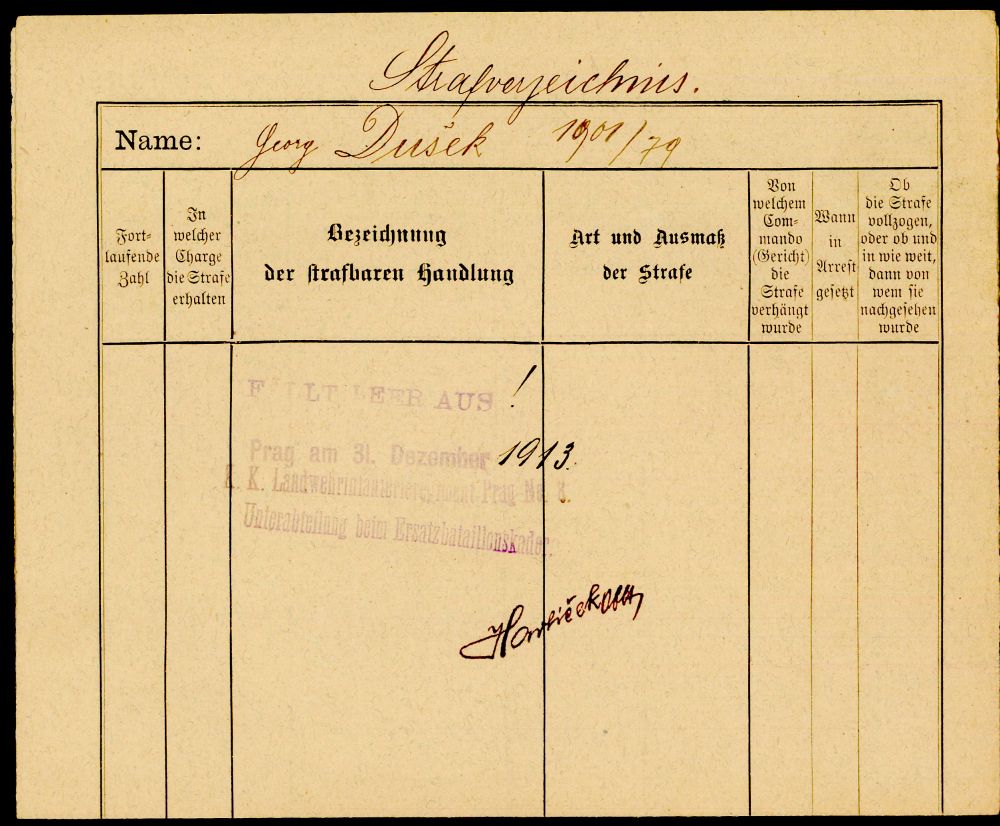 Strafverzeichnis.
Name: Georg Dušek 1901/79
Fort-
laufende
Zahl
In
welcher
Charge
die Strafe
erhalten
Bezeichnung
der strafbaren Handlung
Art und Ausmaß
der Strafe
Von
welchem
Com-
mando
(Gericht)
die
Strafe
verhängt
wurde
Wann
in
Arrest
gesetzt
Ob
die Strafe
vollzogen,
oder ob und
in wie weit,
dann von
wem sie
nachgesehen
wurde
FÄLLT LEER AUS !
Prag am 31. Dezember 1913.
K. K. Landwehrinfanterieregiment Prag No. 8.
Unterabteilung beim Ersatzbataillonskader.